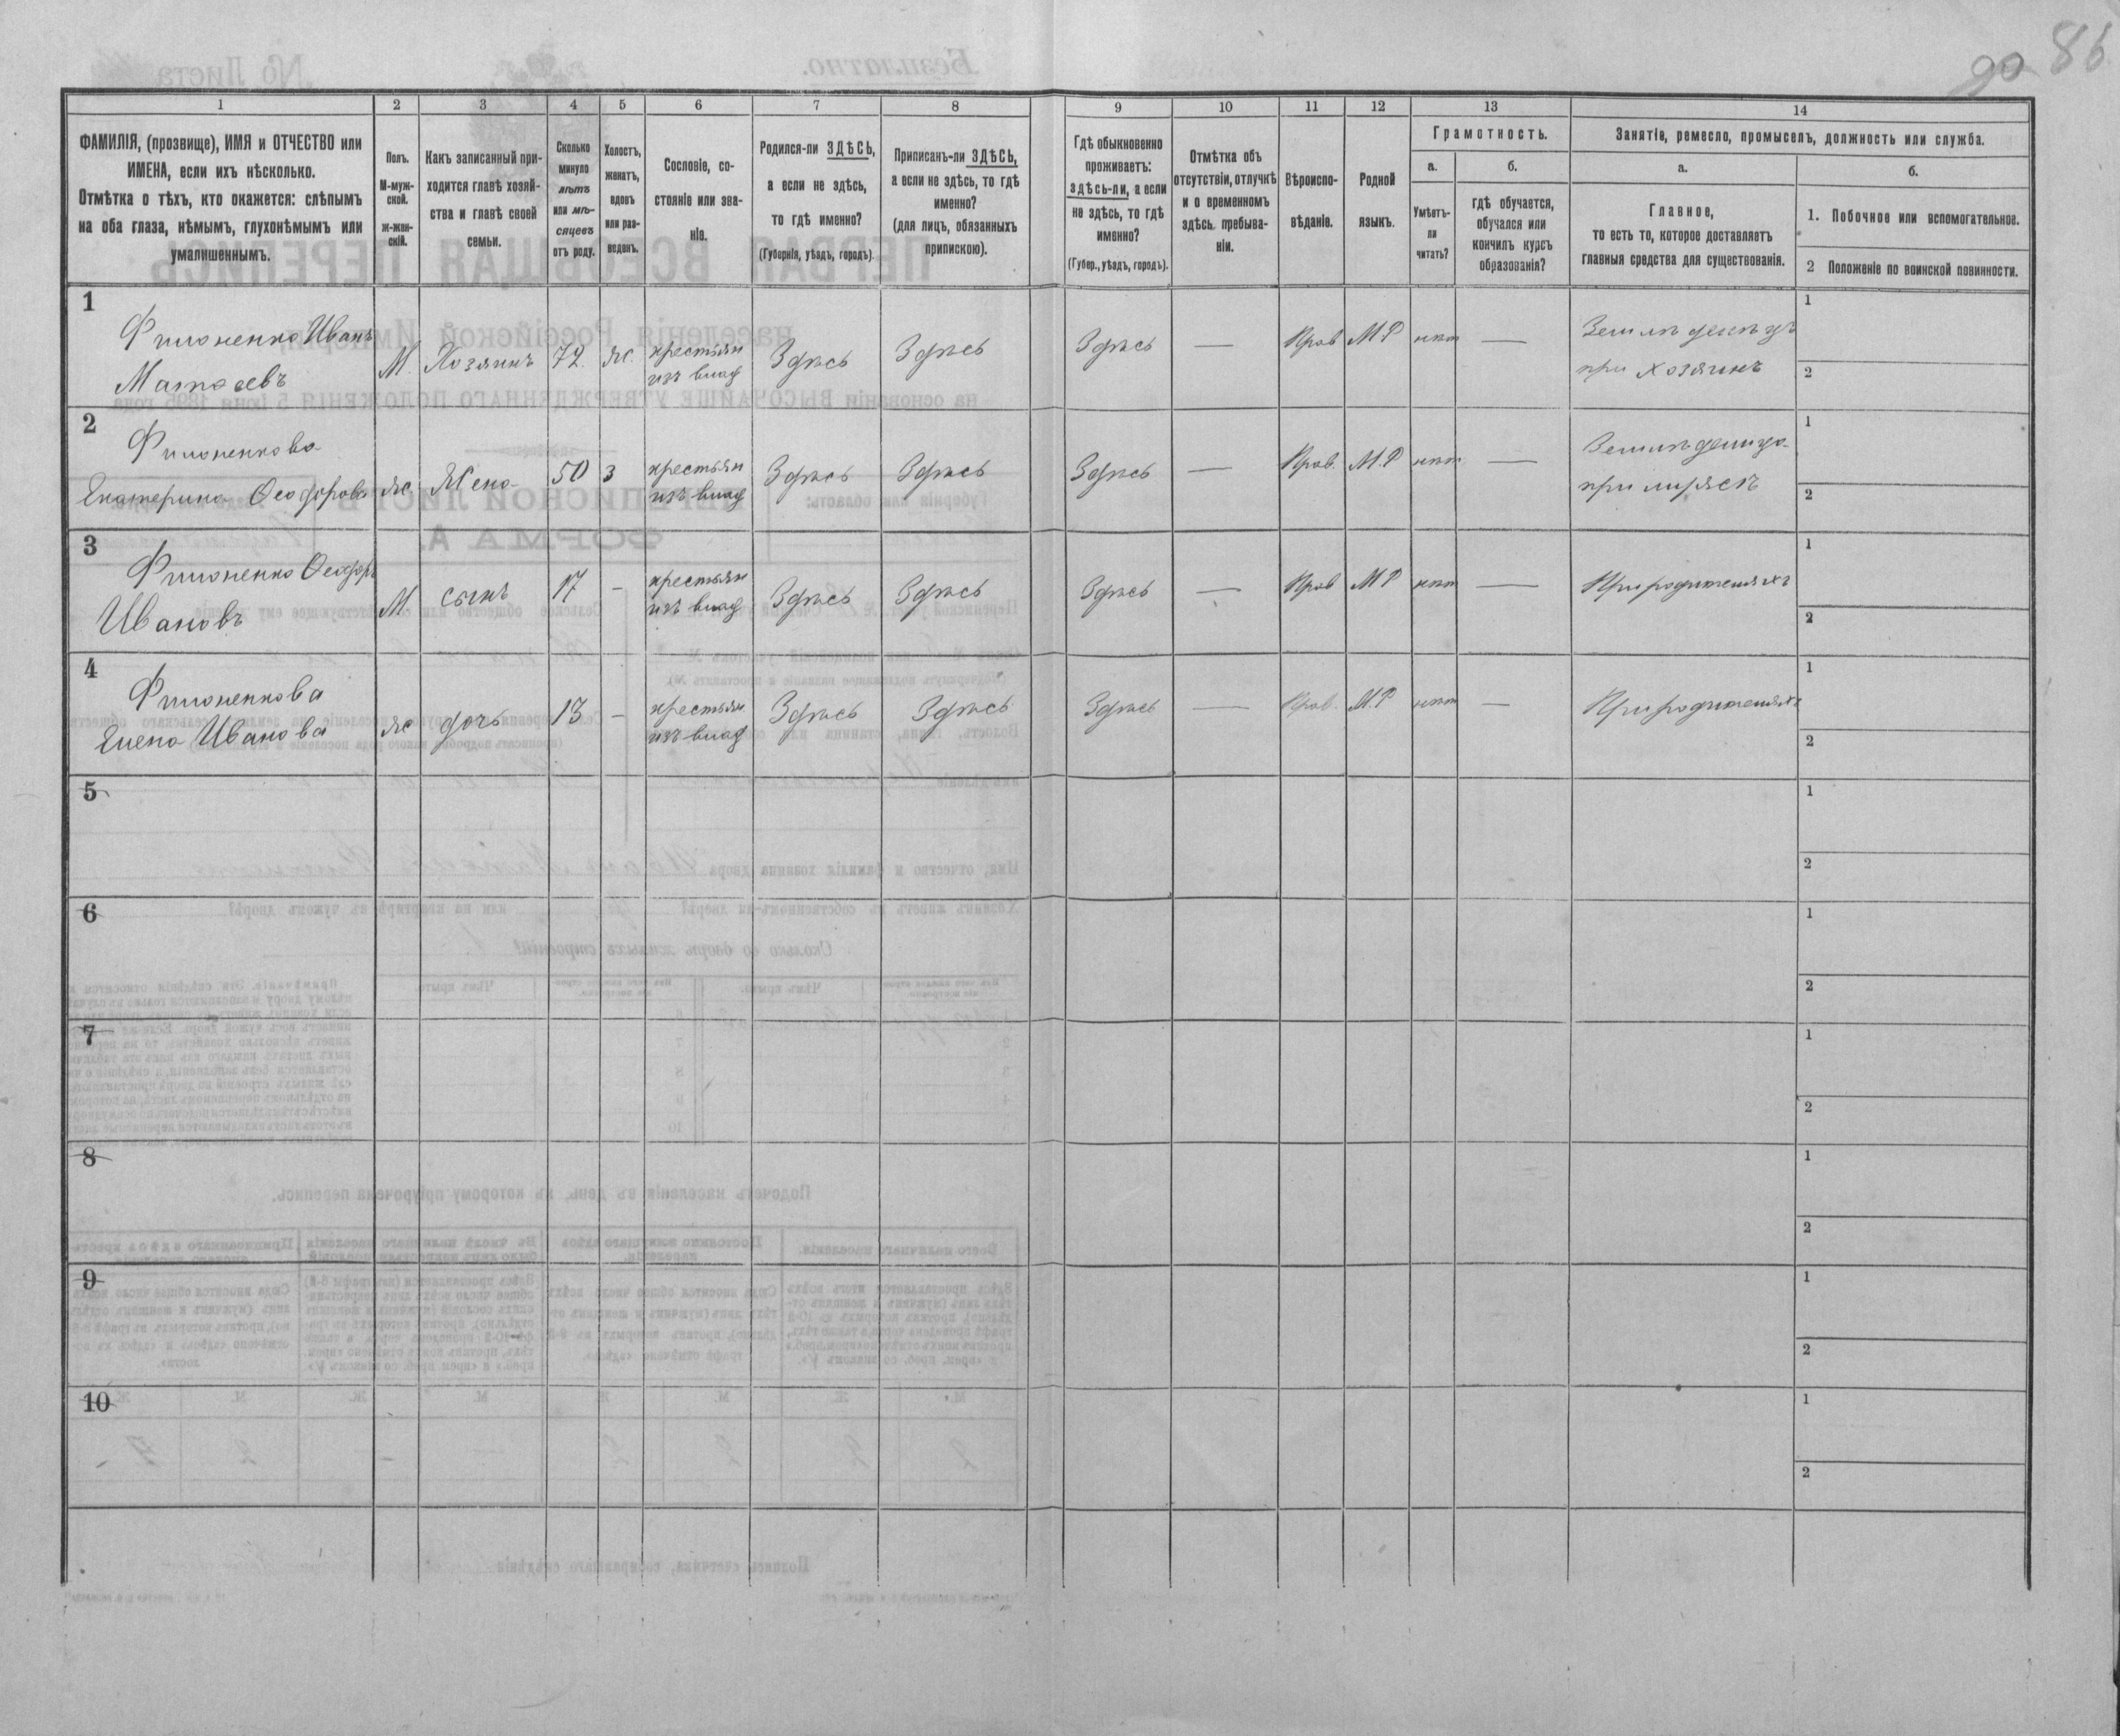 90 86
1 2 3 4 5 6 7 8 9 10 11 12 13 14
ФАМИЛІЯ, (прозвище), ИМЯ и ОТЧЕСТВО или
ИМЕНА, если ихъ нѣсколько.
Отмѣтка о тѣхъ, кто окажется: слѣпымъ
на оба глаза, нѣмымъ, глухонѣмымъ или
умалишеннымъ.
Полъ.
М-муж-
ской.
ж-жен-
скій.
Какъ записанный при-
ходится главѣ хозяй-
ства и главѣ своей
семьи.
Сколько
минуло
лѣтъ
или мѣ-
сяцевъ
отъ роду.
Холостъ,
женатъ,
вдовъ
или раз-
веденъ.
Сословіе, со-
стояніе или зва-
ніе.
Родился-ли ЗДѢСЬ,
а если не здѣсь,
то гдѣ именно?
(Губернія, уѣздъ, городъ).
Приписанъ-ли ЗДѢСЬ,
а если не здѣсь, то гдѣ
именно?
(для лицъ, обязанныхъ
припискою).
Гдѣ обыкновенно
проживаетъ:
здѣсь-ли, а если
не здѣсь, то гдѣ
именно?
(Губер., уѣздъ, городъ).
Отмѣтка объ
отсутствіи, отлучкѣ
и о временномъ
здѣсь пребыва-
ніи.
Вѣроиспо-
вѣданіе.
Родной
языкъ.
Грамотность.
а.
Умѣетъ-
ли
читать?
б.
гдѣ обучается,
обучался или
кончилъ курсъ
образованія?
Занятіе, ремесло, промыселъ, должность или служба.
а.
Главное,
то есть то, которое доставляетъ
главныя средства для существованія.
б.
1. Побочное или вспомогательное.
2 Положеніе по воинской повинности.
1
Филоненко Иванъ
Матвеевъ
М. Хозяинъ 72. ж. крестьян
изъ влад Здѣсь Здѣсь Здѣсь — Прав М.Р нѣт —
Земледелецъ
при хозяинѣ
1
2
2
Филоненкова
Екатерина Феодорова
ж. Жена 50 з крестьян
изъ влад Здѣсь Здѣсь Здѣсь — Прав. М.Р нѣт —
1
2
3
Филоненко Феодоръ
Ивановъ
М сынъ 17 - крестьян
изъ влад Здѣсь Здѣсь Здѣсь — Прав М Р нѣт —
При родителяхъ
1
2
4
Филоненкова
Елена Иванова
ж дочь 13 - крестьян
изъ влад Здѣсь Здѣсь Здѣсь — Прав. М.Р нѣт —
При родителяхъ
1
2
5
1
2
6
1
2
7
1
2
8
1
2
9
1
2
10
1
2